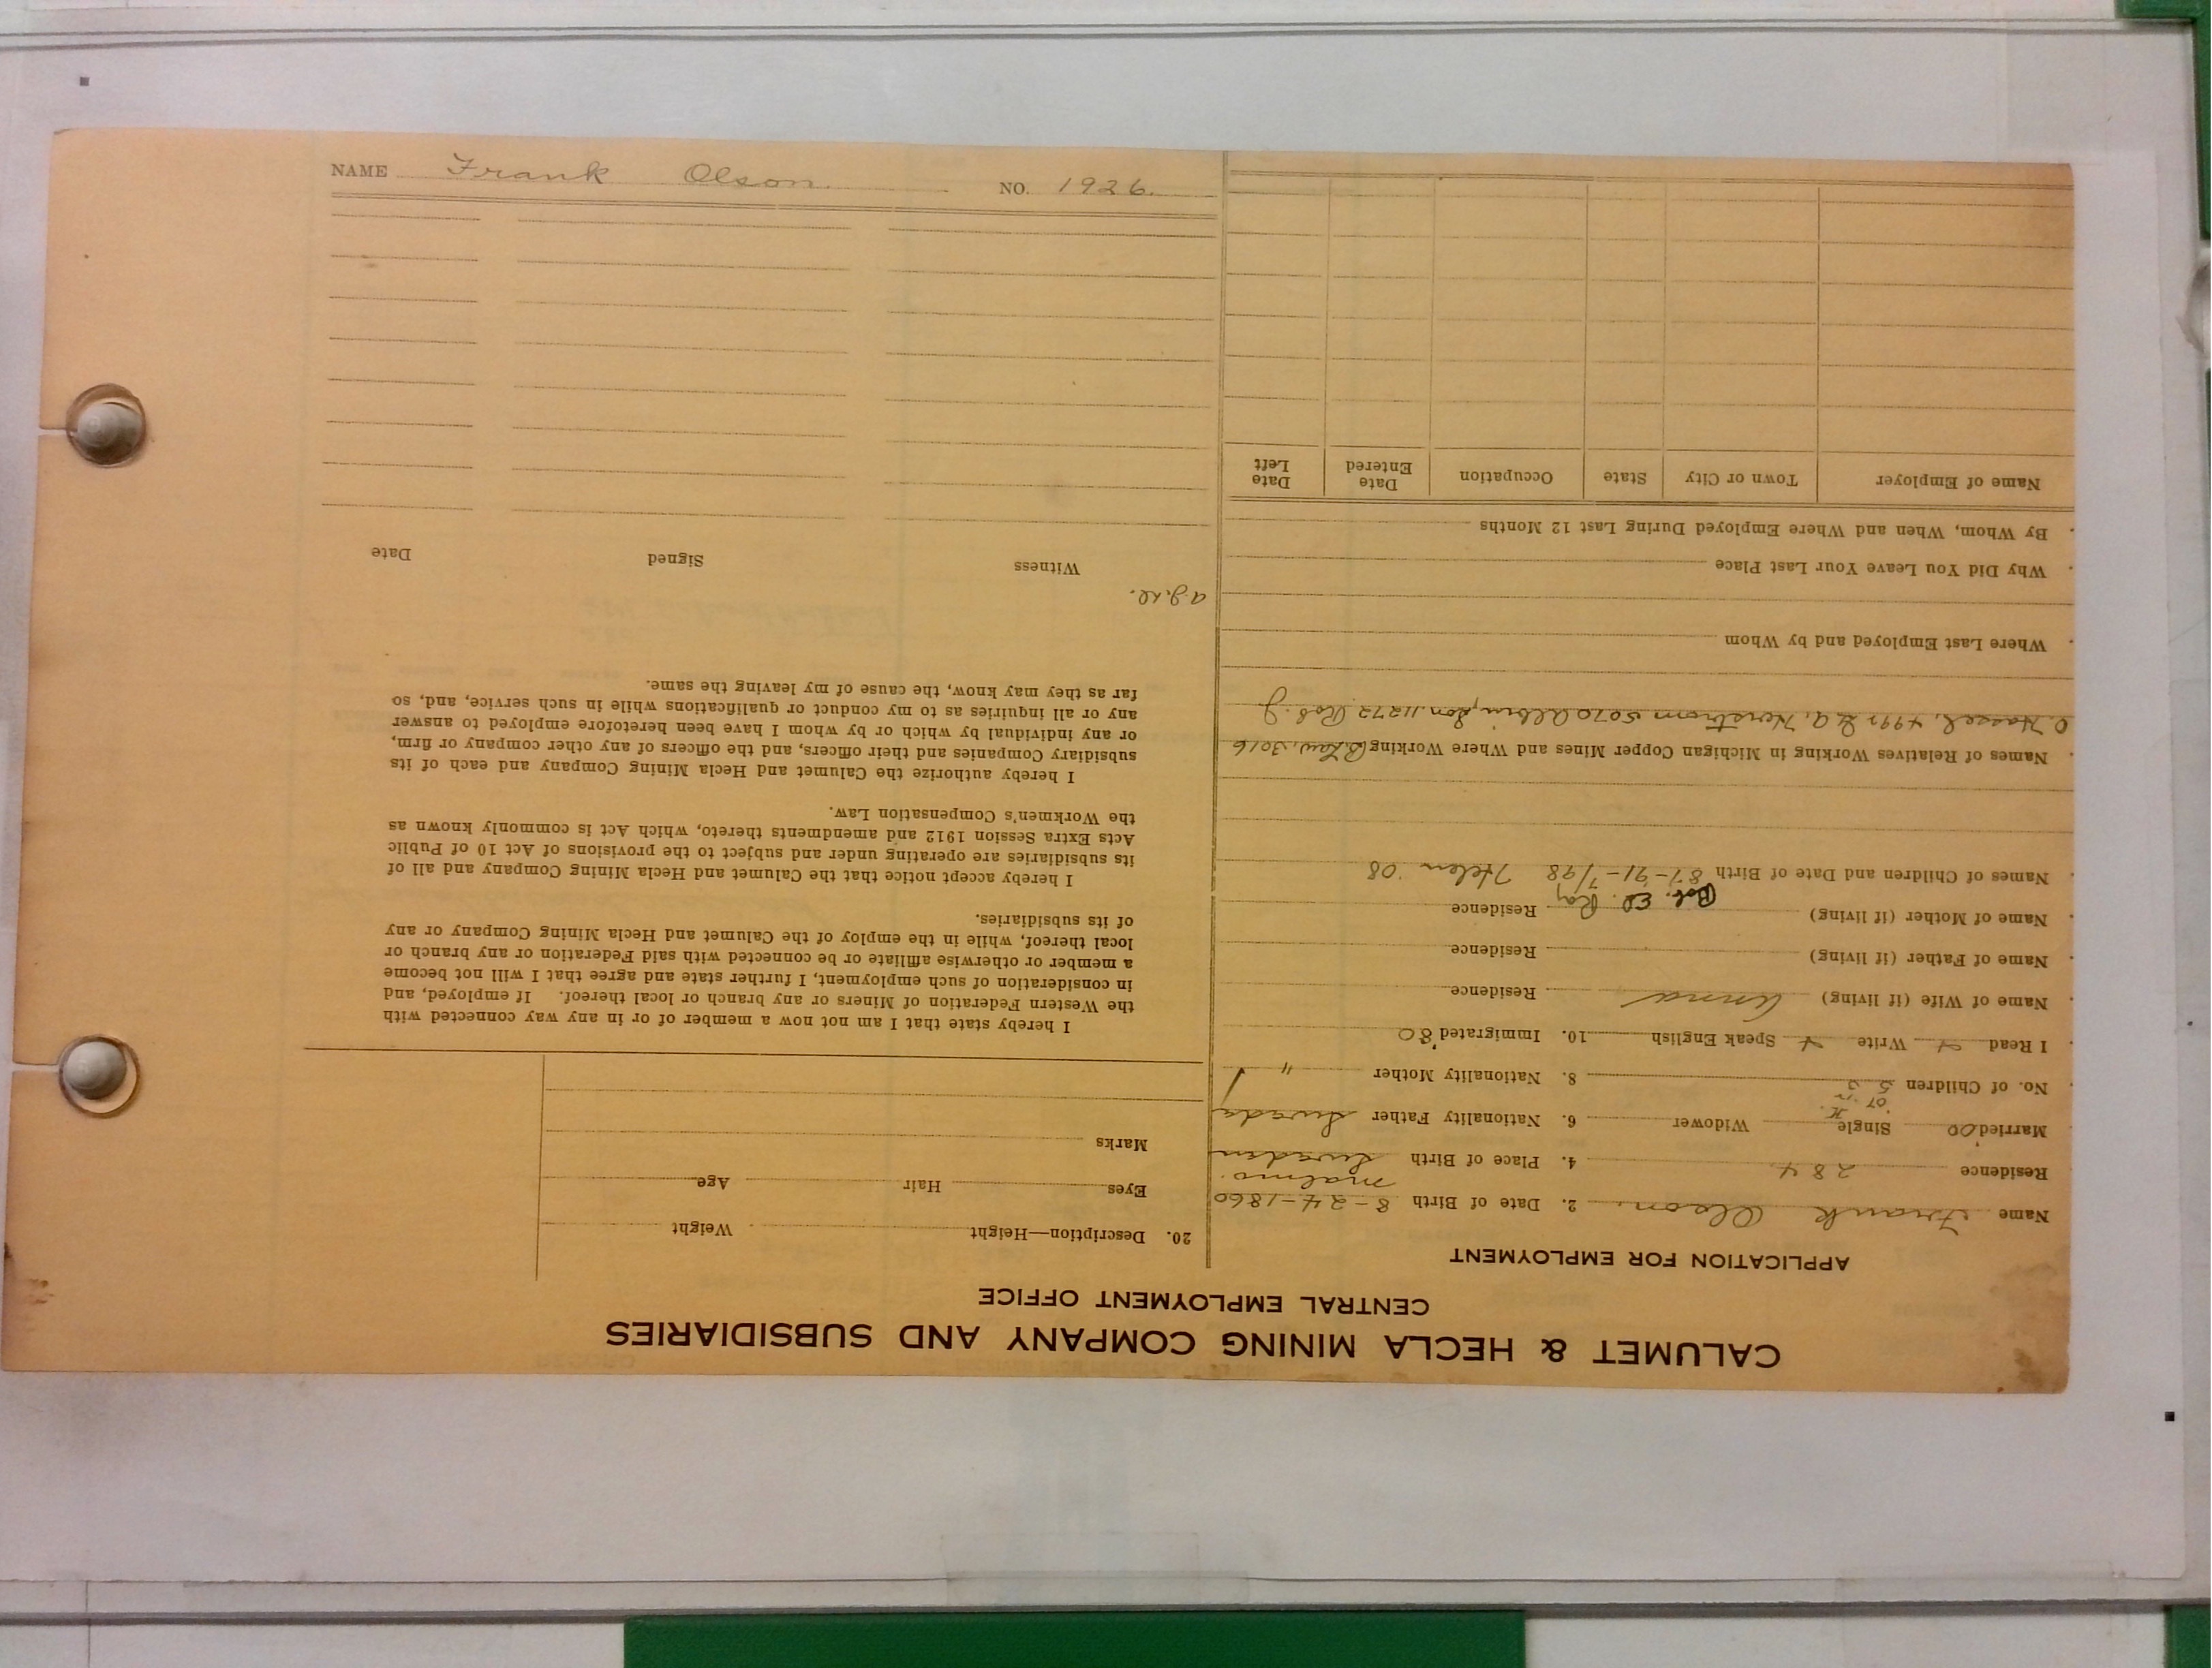 CALUMET & HECLA MINING COMPANY AND SUBSIDIARIES
CENTRAL EMPLOYMENT OFFICE
APPLICATION FOR EMPLOYMENT
Name Frank Olson. 2. Date of Birth 8-24-1860
Malmo.
Residence 284 4. Place of Birth Sweden
Married 00 Single Widower 6. Nationality Father Sweden
No. of Children 5 8. Nationality Mother "
I Read Write Speak English 10. Immigrated '80
Name of Wife (if living) Anna Residence
Name of Father (if living) Residence
Name of Mother (if living) Residence
Rob. Ed. Ray
Names of Children and Date of Birth 87-91-7/98 Helen '08
Names of Relatives Working in Michigan Copper Mines and Where Working 3016
O. Hassel, A. Kerstrom 5070 Albin, Son 11272 Rob. J
Where Last Employed and by Whom
Why Did You Leave Your Last Place
By Whom, When and Where Employed During Last 12 Months
Name of Employer Town or City State Occupation Date Entered Date Left
20. Description—Height Weight
Eyes Hair Age
Marks
I hereby state that I am not now a member of or in any way connected with
the Western Federation of Miners or any branch or local thereof. If employed, and
in consideration of such employment, I further state and agree that I will not become
a member or otherwise affiliate or be connected with said Federation or any branch or
local thereof, while in the employ of the Calumet and Hecla Mining Company or any
of its subsidiaries.
I hereby accept notice that the Calumet and Hecla Mining Company and all of
its subsidiaries are operating under and subject to the provisions of Act 10 of Public
Acts Extra Session 1912 and amendments thereto, which Act is commonly known as
the Workmen's Compensation Law.
I hereby authorize the Calumet and Hecla Mining Company and each of its
subsidiary Companies and their officers, and the officers of any other company or firm,
or any individual by which or by whom I have been heretofore employed to answer
any or all inquiries as to my conduct or qualifications while in such service, and, so
far as they may know, the cause of my leaving the same.
Witness Signed Date
NAME Frank Olson. NO. 1926.